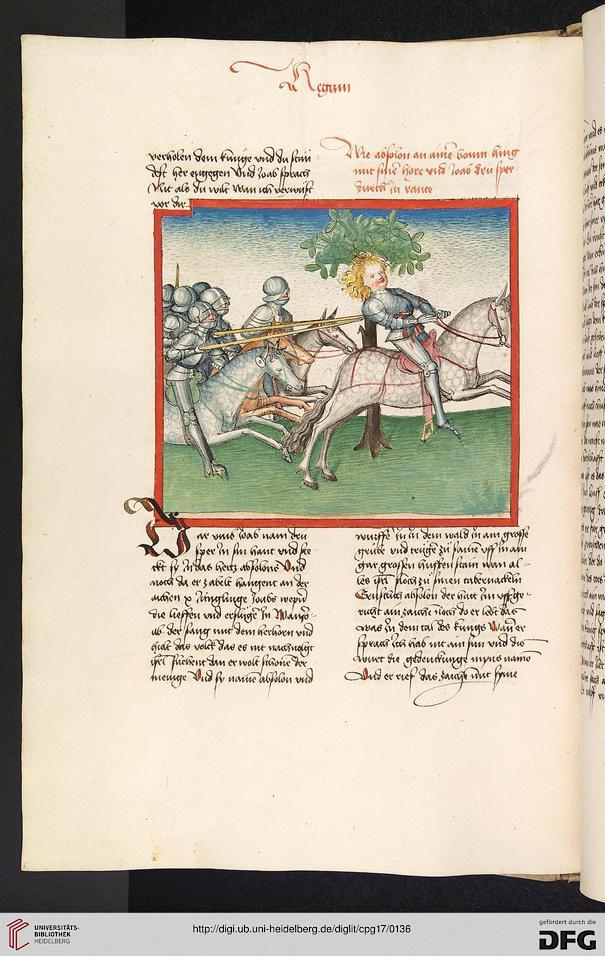 Regum
verholen dem künige vnd du stüñ
dest her engegen Vnd Joab sprach
Nit als du wilt wan ich verwüst
vor dir
Wie absolon an aine boum hing
mit sine hore vnd Joab drü sper
durch in rante
ar vmb Joab nam drü
sper in sin hant vnd ste
ckt sy in das hertz absolons Vnd
noch da er zabelt hangent an der
aichen x Jünglinge Joabs wepner
die lieffen vnd erslügen in
Joab der sang mit dem herhorn vnd
hielt das volck das es nit nachuolgt
isrl fliehent dan er wolt schonen der
menige Vnd sy namen absolon vnd
wurffe in in dem wald in ain grosse
grube vnd trüge zü same vff in ain
gar grossen huffen stain wan al
les isrl floch zu sinen tabernackeln
absolon der hat im vffge
richt ain zaiche noch do er lebt das
was in dem tal des künigs Wan er
sprach Ich hab nit ain sun vnd die
wirt die gedenckunge myns name
Vnd er rief das zaiche mit syme
UNIVERSITÄTS-
BIBLIOTHEK
HEIDELBERG
http://digi.ub.uni-heidelberg.de/diglit/cpg17/0136
gefördert durch die
DFG